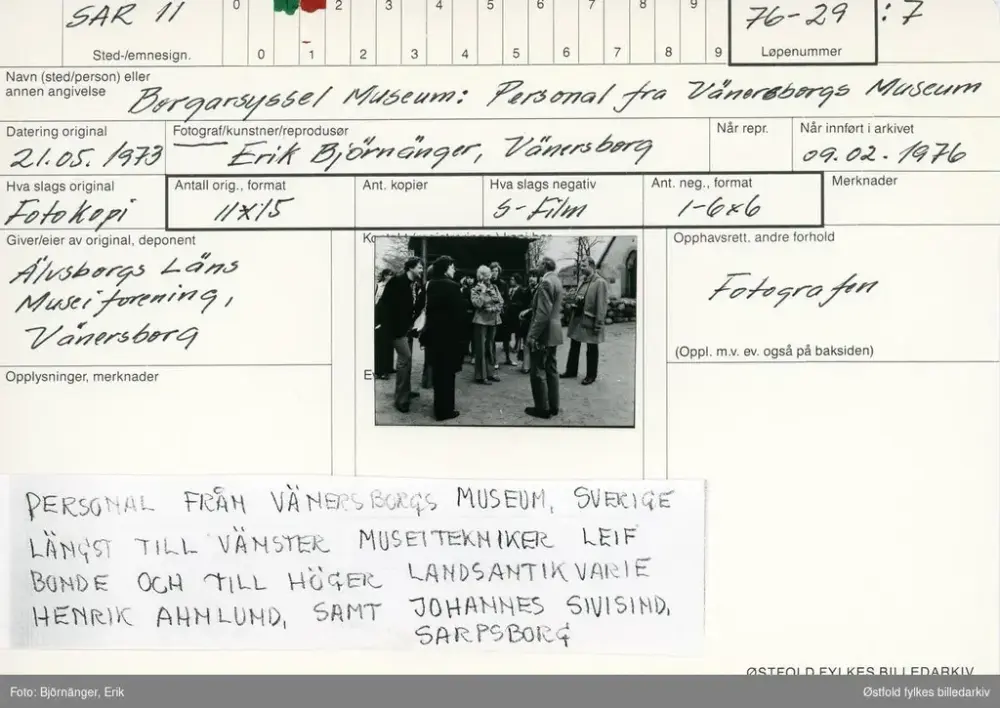 SAR 11
0 2 3 4 5 6 7 8 9
76-29 : 7
Sted-/emnesign.
0 1 2 3 4 5 6 7 8 9
Løpenummer
Navn (sted/person) eller
annen angivelse
Borgarsyssel Museum: Personal fra Vänersborgs Museum
Datering original
21.05.1973
Fotograf/kunstner/reprodusør
Erik Björnänger, Vänersborg
Når repr.
Når innført i arkivet
09.02.1976
Hva slags original
Fotokopi
Antall orig., format
11x15
Ant. kopier
Hva slags negativ
S-Film
Ant. neg., format
1-6x6
Merknader
Giver/eier av original, deponent
Älvsborgs Läns
Museiforening,
Vänersborg
Opphavsrett. andre forhold
Fotografen
(Oppl. m.v. ev. også på baksiden)
Opplysninger, merknader
PERSONAL FRÅN VÄNERSBORGS MUSEUM, SVERIGE
LÄNGST TILL VÄNSTER MUSEITEKNIKER LEIF
BONDE OCH TILL HÖGER LANDSANTIKVARIE
HENRIK AHNLUND, SAMT JOHANNES SIVISIND,
SARPSBORG
ØSTFOLD FYLKES BILLEDARKIV
Foto: Björnänger, Erik
Østfold fylkes billedarkiv